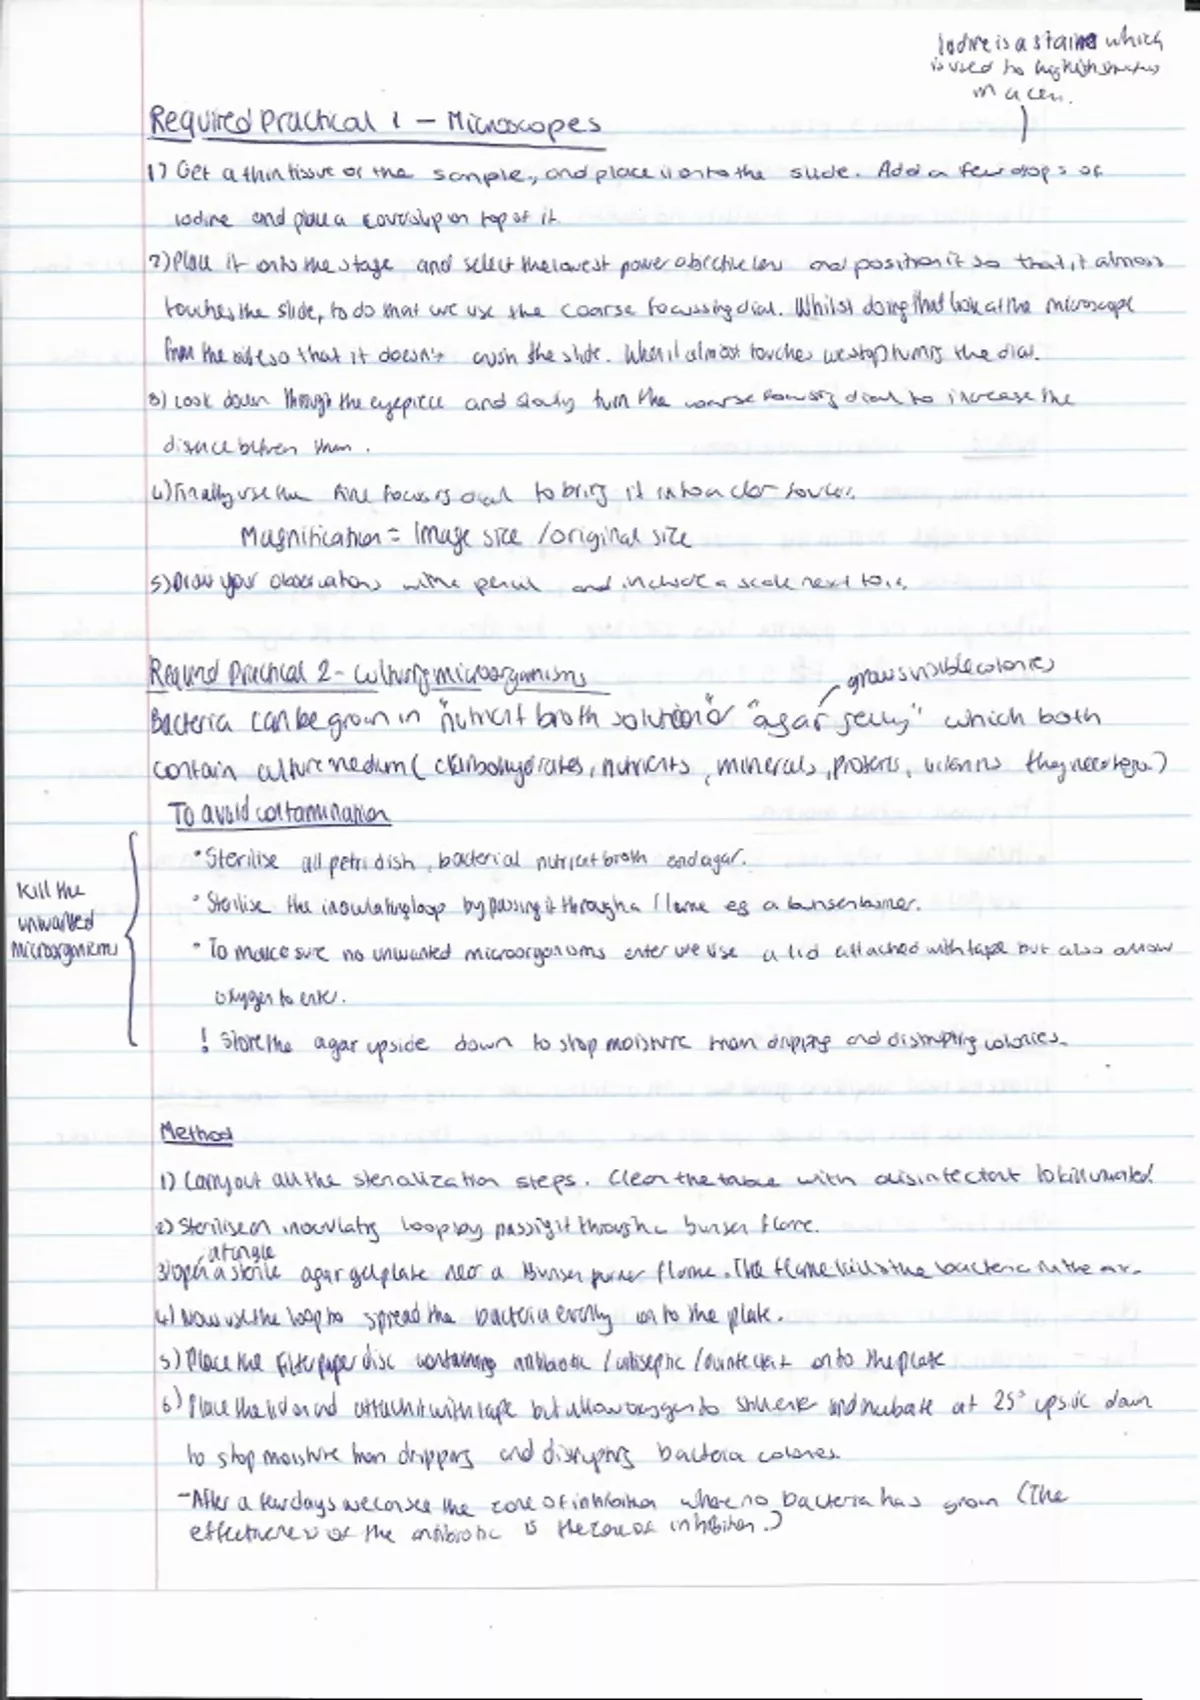 Iodine is a stain which
is used to highlight structures
in a cell.
Required Practical 1 – Microscopes
1) Get a thin tissue of the sample, and place it onto the slide. Add a few drops of
iodine and place a coverslip on top of it
2) Place it onto the stage and select the lowest power objective lens and position it so that it almost
touches the slide, to do that we use the coarse focussing dial. Whilst doing that look at the microscope
from the side so that it doesn't crush the slide. When it almost touches we stop turning the dial.
3) Look down through the eyepiece and slowly turn the coarse focussing dial to increase the
distance between them.
4) Finally use the fine focussing dial to bring it into a clear focus.
Magnification = Image size / original size
5) Draw your observations with a pencil and include a scale next to it.
Required Practical 2 - Culturing microorganisms
grows visible colonies
Bacteria can be grown in "nutrient broth solution" or "agar jelly" which both
contain culture medium (carbohydrates, nutrients, minerals, proteins, vitamins they need to grow)
To avoid contamination
• Sterilise all petri dish, bacterial nutrient broth and agar.
Kill the
unwanted
microorganisms
• Sterilise the inoculating loop by passing it through a flame eg a bunsen burner.
• To make sure no unwanted microorganisms enter we use a lid attached with tape but also allow
oxygen to enter.
! Store the agar upside down to stop moisture from dripping and disrupting colonies.
Method
1) Carry out all the sterialization steps. Clean the table with disinfectant to kill unwanted.
2) Sterilise an inoculating loop by passing it through a bunsen flame.
at angle
3) open a sterile agar gel plate near a Bunsen burner flame. The flame kills the bacteria in the air.
4) Now use the loop to spread the bacteria evenly on to the plate.
5) Place the filter paper disc containing antibiotic / antiseptic / disinfectant onto the plate
6) Place the lid on and attach it with tape but allow oxygen to still enter and incubate at 25° upside down
to stop moisture from dripping and disrupting bacteria colonies.
- After a few days we can see the zone of inhibition where no bacteria has grown (The
effectiveness of the antibiotic is the zone of inhibition.)